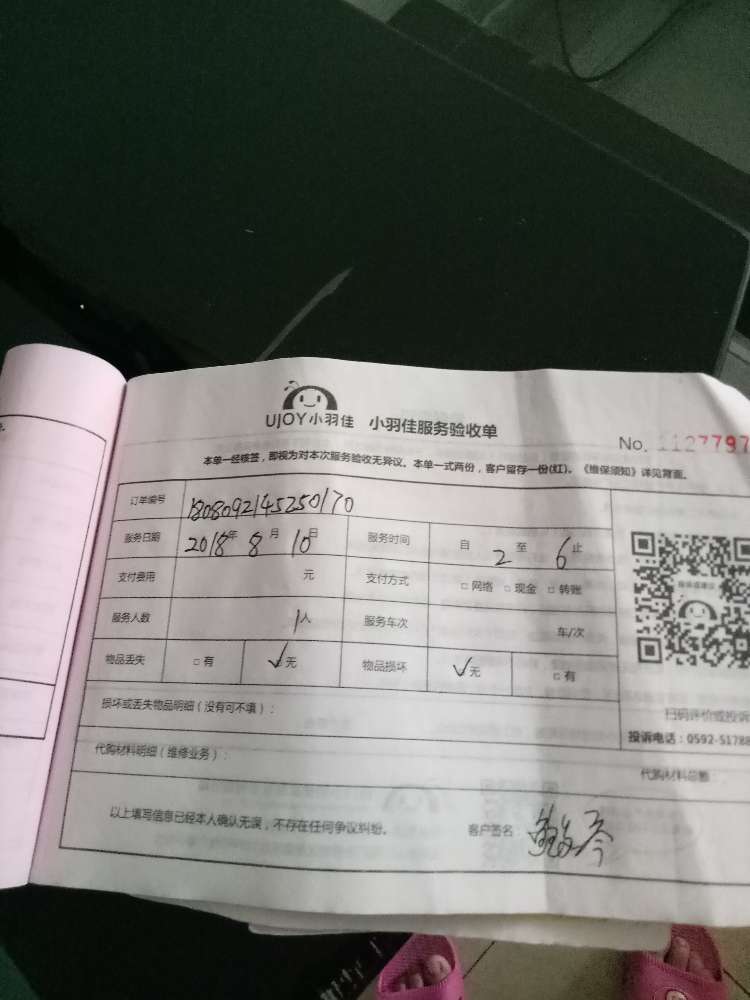 UJOY小羽佳 小羽佳服务验收单
No. 1127797
本单一经核签，即视为对本次服务验收无异议。本单一式两份，客户留存一份(红)。《维保须知》详见背面。
订单编号 1808092145250170
服务日期 2018年 8月 10日 服务时间 自 2 至 6 止
支付费用 元 支付方式 □网络 □现金 □转账
服务人数 1人 服务车次 车/次
物品丢失 □有 ✓无 物品损坏 ✓无 □有
扫码评价或投诉
损坏或丢失物品明细（没有可不填）：
投诉电话：0592-51788
代购材料明细（维修业务）： 代购材料总额：
以上填写信息已经本人确认无误，不存在任何争议纠纷。 客户签名：